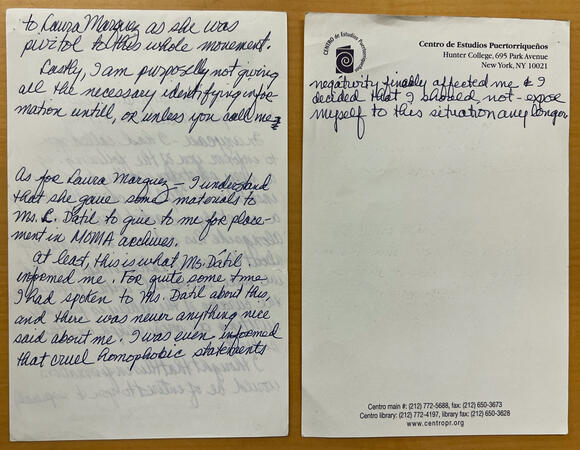 to Laura Marquez as she was
pivotol to this whole movement.
Lastly, I am purposlly not giving
all the necessary identifying infor
mation untill, or unless you call me
As for Laura Marquez — I understand
that she gave some materials to
Ms. L. Datil to give to me for place-
ment in MOMA archives.
At least, this is what Ms. Datil
informed me. For quite some time
I had spoken to Ms. Datil about this,
and there was never anything nice
said about me. I was even informed
that cruel homophobic statements
CENTRO de Estudios Puertorriqueños
Centro de Estudios Puertorriqueños
Hunter College, 695 Park Avenue
New York, NY 10021
negativity finally affected me & I
decided that I should not expose
myself to this situation any longer
Centro main #: (212) 772-5688, fax: (212) 650-3673
Centro library: (212) 772-4197, library fax: (212) 650-3628
www.centropr.org